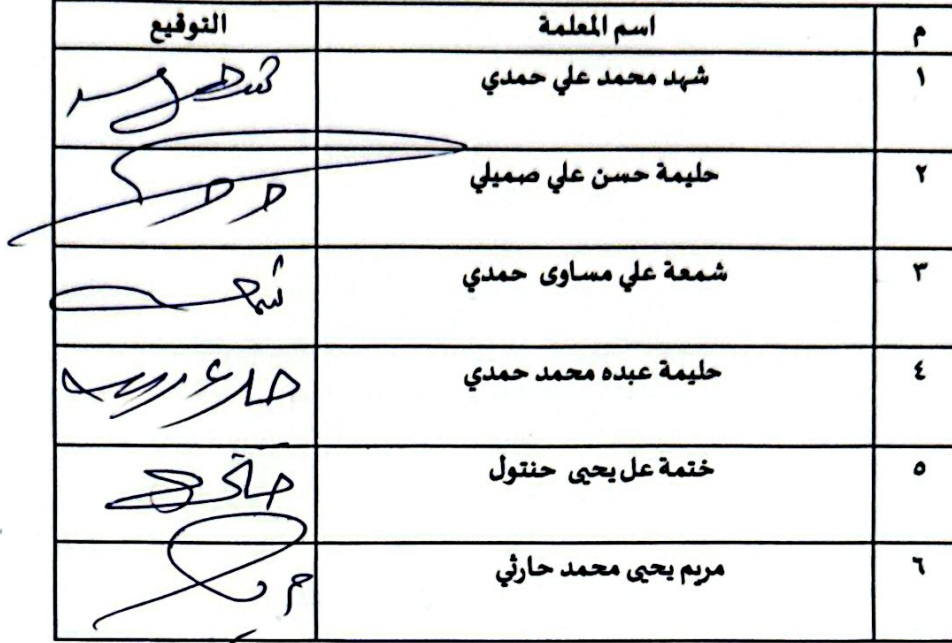 م اسم المعلمة التوقيع
١ شهد محمد علي حمدي
٢ حليمة حسن علي صميلي
٣ شمعة علي مساوى حمدي
٤ حليمة عبده محمد حمدي
٥ ختمة عل يحيى حنتول
٦ مريم يحيى محمد حارثي